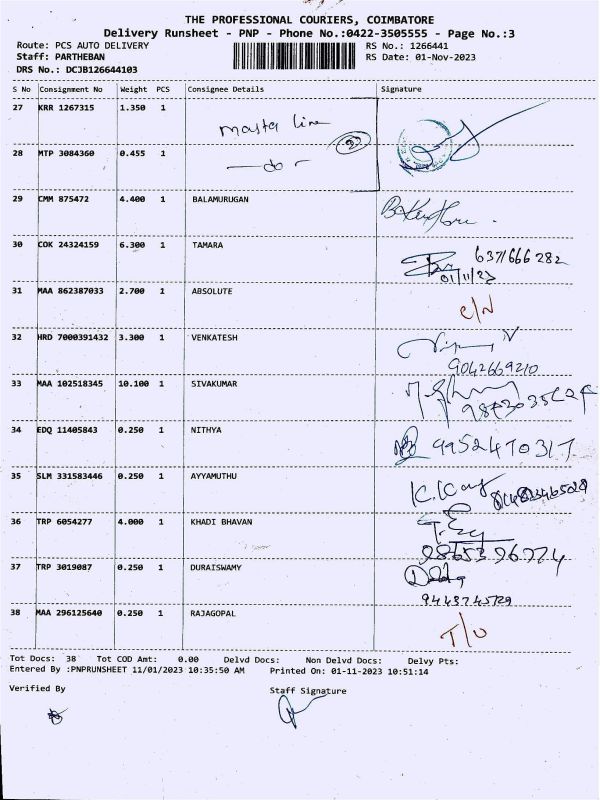 THE PROFESSIONAL COURIERS, COIMBATORE
Delivery Runsheet - PNP - Phone No.:0422-3505555 - Page No.:3
Route: PCS AUTO DELIVERY RS No.: 1266441
Staff: PARTHEBAN RS Date: 01-Nov-2023
DRS No.: DCJB126644103
S No Consignment No Weight PCS Consignee Details Signature
27 KRR 1267315 1.350 1 Master line
28 MTP 3084360 0.455 1 — do —
29 CMM 875472 4.400 1 BALAMURUGAN
30 COK 24324159 6.300 1 TAMARA 6371666282
01/11/23
31 MAA 862387033 2.700 1 ABSOLUTE C/N
32 HRD 7000391432 3.300 1 VENKATESH
9042669210
33 MAA 102518345 10.100 1 SIVAKUMAR
34 EDQ 11405843 0.250 1 NITHYA 9952470317
35 SLM 331583446 0.250 1 AYYAMUTHU
36 TRP 6054277 4.000 1 KHADI BHAVAN
9865396774
37 TRP 3019087 0.250 1 DURAISWAMY
9443745729
38 MAA 296125640 0.250 1 RAJAGOPAL T/O
Tot Docs: 38 Tot COD Amt: 0.00 Delvd Docs: Non Delvd Docs: Delvy Pts:
Entered By :PNPRUNSHEET 11/01/2023 10:35:50 AM Printed On: 01-11-2023 10:51:14
Verified By Staff Signature